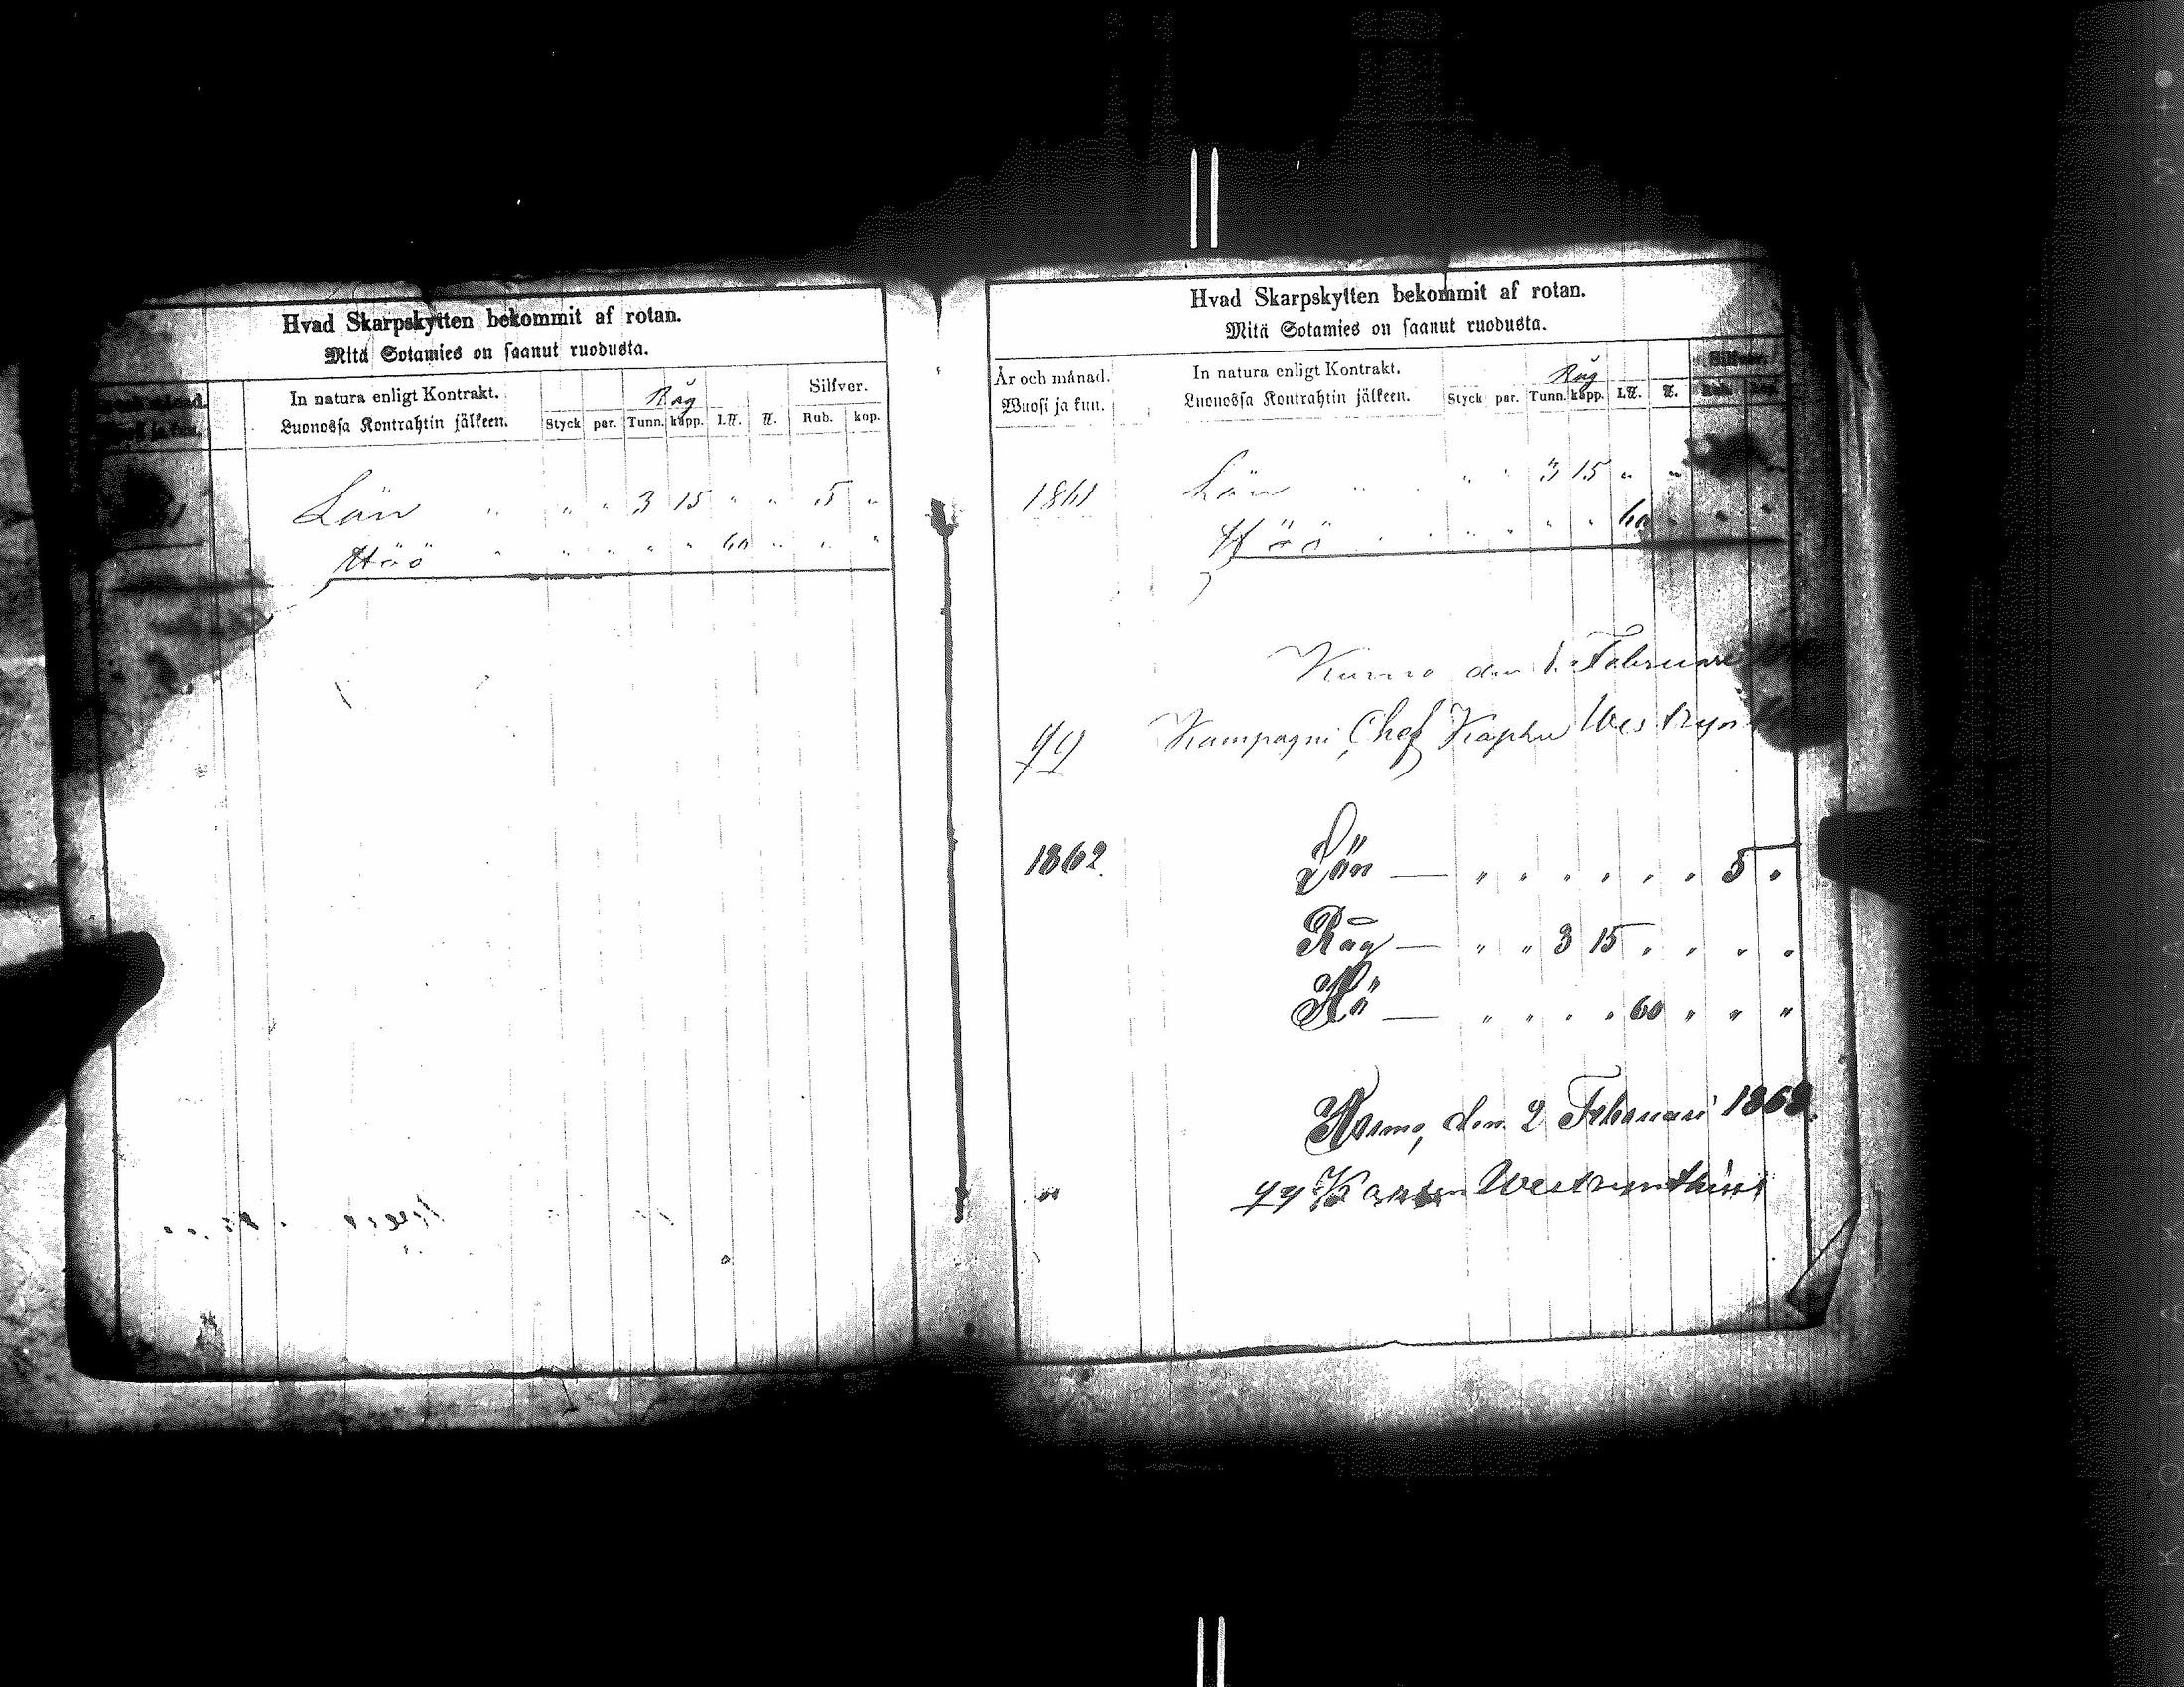 Hvad Skarpskytten bekommit af rotan.
Mitä Sotamies on saanut ruodusta.
In natura enligt Kontrakt.
Luonossa Kontrahtin jälkeen.
Råg
Silfver.
Styck par. Tunn. kapp. L℔. ℔. Rub. kop.
Lön " " " 3 15 " " 5 "
Höö " " " " " 60 " " "
Hvad Skarpskytten bekommit af rotan.
Mitä Sotamies on saanut ruodusta.
År och månad.
Wuosi ja kuu.
In natura enligt Kontrakt.
Luonossa Kontrahtin jälkeen.
Råg
Silfver.
Styck par. Tunn. kapp. L℔. ℔. Rub. kop.
1861 Lön " " " 3 15 " "
Höö " " " " " 60 " " "
den 1. Februari
Kompagni Chef
1862. Lön — " " " " " " 5 "
Råg — " " 3 15 " " " "
Hö — " " " " 60 " " "
den 2 Februari 1862.